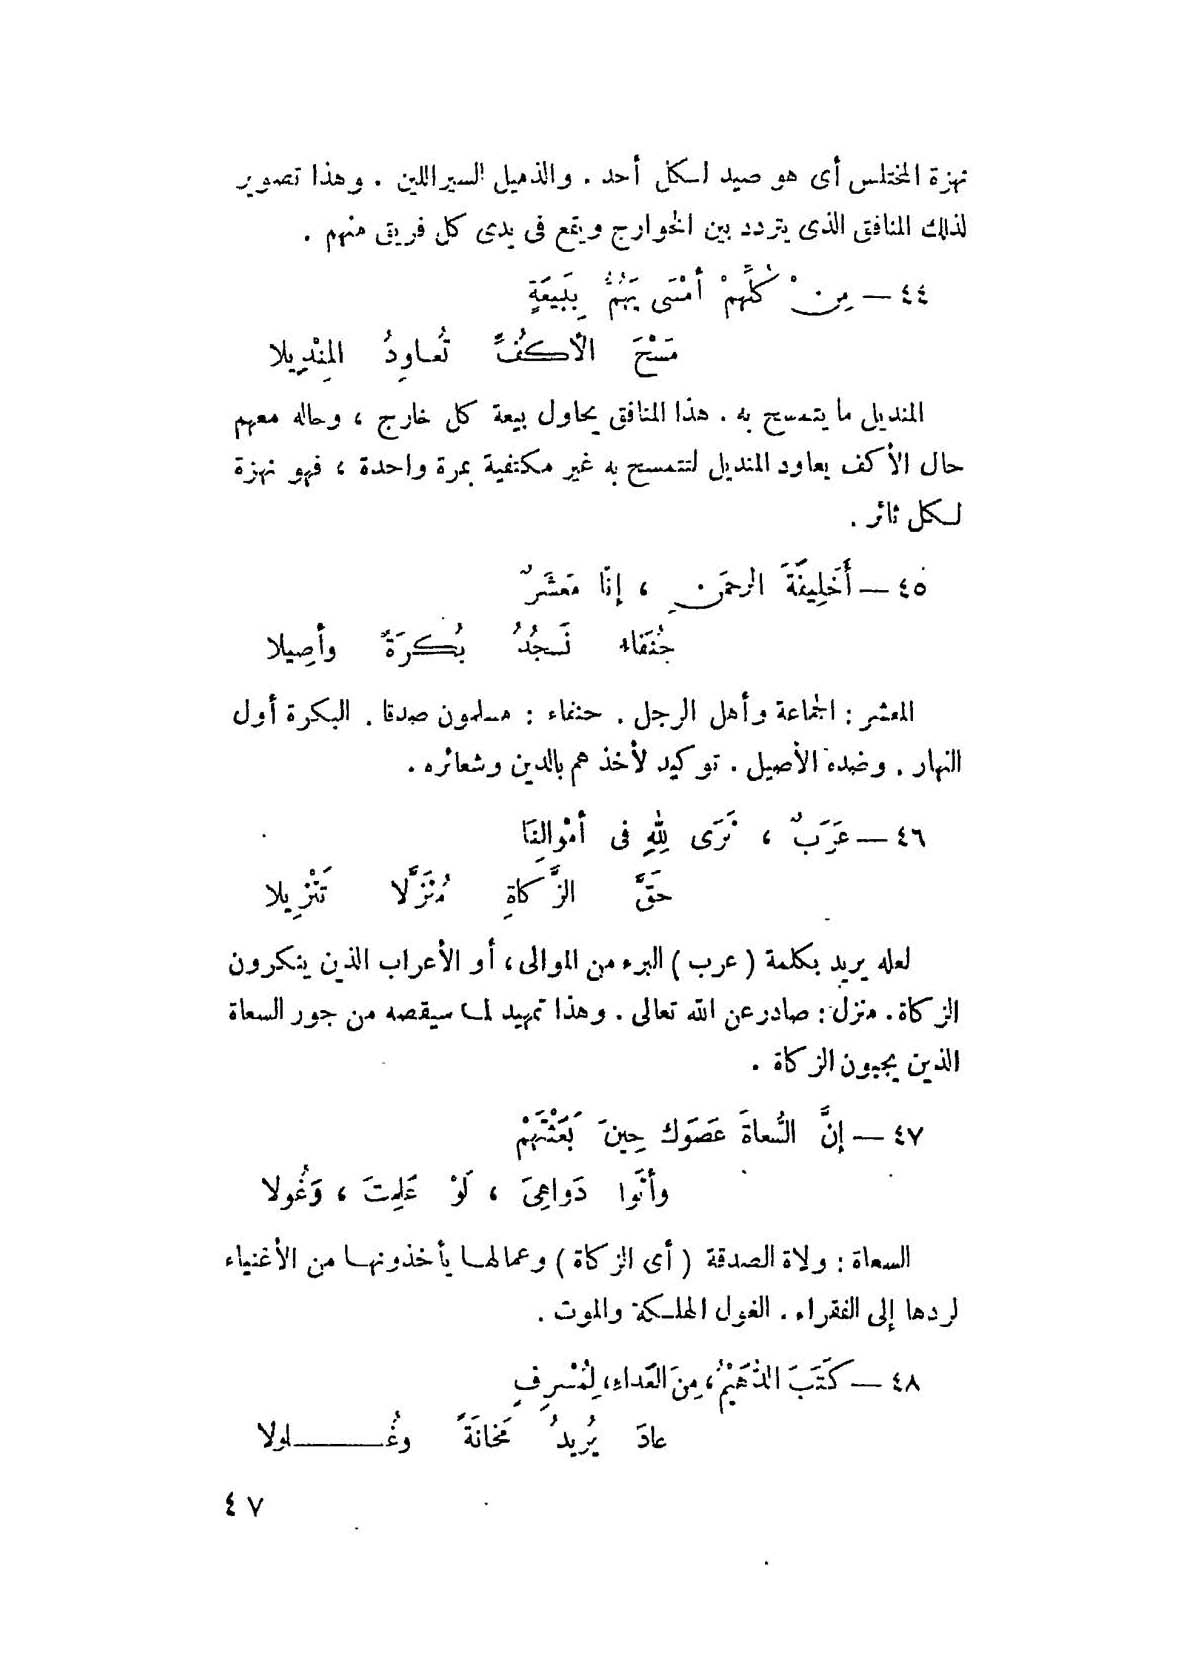 نهزة المختلس أى هو صيد لكل أحد . والذميل السيراللين . وهذا تصوير
لذلك المنافق الذى يتردد بين الخوارج ويقع فى يدى كل فريق منهم .
٤٤ — مِنْ كُلِّهِمْ أمْسَى يَهُمُّ بِبَيعَةٍ
مَسْحَ الأكُفِّ تُعاوِدُ المِنْدِيلا
المنديل ما يتمسح به . هذا المنافق يحاول بيعة كل خارج ، وحاله معهم
حال الأكف يعاود المنديل لتتمسح به غير مكتفية بمرة واحدة ، فهو نهزة
لكل ثائر .
٤٥ — أَخَلِيفَةَ الرحمَنِ ، إنّا مَعشَرٌ
حُنَفاء نَسجُدُ بُكرَةً وأصِيلا
المعشر : الجماعة وأهل الرجل . حنفاء : مسلمون صدقا . البكرة أول
النهار . وضده الأصيل . توكيد لأخذهم بالدين وشعائره .
٤٦ — عَرَبٌ ، نَرَى لِلّهِ فى أمْوالِنَا
حَقَّ الزَّكاةِ مُنَزَّلا تَنْزِيلا
لعله يريد بكلمة ( عرب ) البرء من الموالى ، أو الأعراب الذين ينكرون
الزكاة . منزل : صادر عن الله تعالى . وهذا تمهيد لما سيقصه من جور السعاة
الذين يجبون الزكاة .
٤٧ — إنَّ السُّعاةَ عَصَوك حِينَ بَعَثْتَهُمْ
وأتَوا دَواهِىَ ، لَوْ عَلِمتَ ، وَغُولا
السعاة : ولاة الصدقة ( أى الزكاة ) وعمالها يأخذونها من الأغنياء
لردها إلى الفقراء . الغول المهلكة والموت .
٤٨ — كَتَبَ الدُّهَيْمُ ، مِنَ العَداءِ ، لِمُسْرِفٍ
عادَ يُرِيدُ مَخانَةً وغُلولا
٤٧